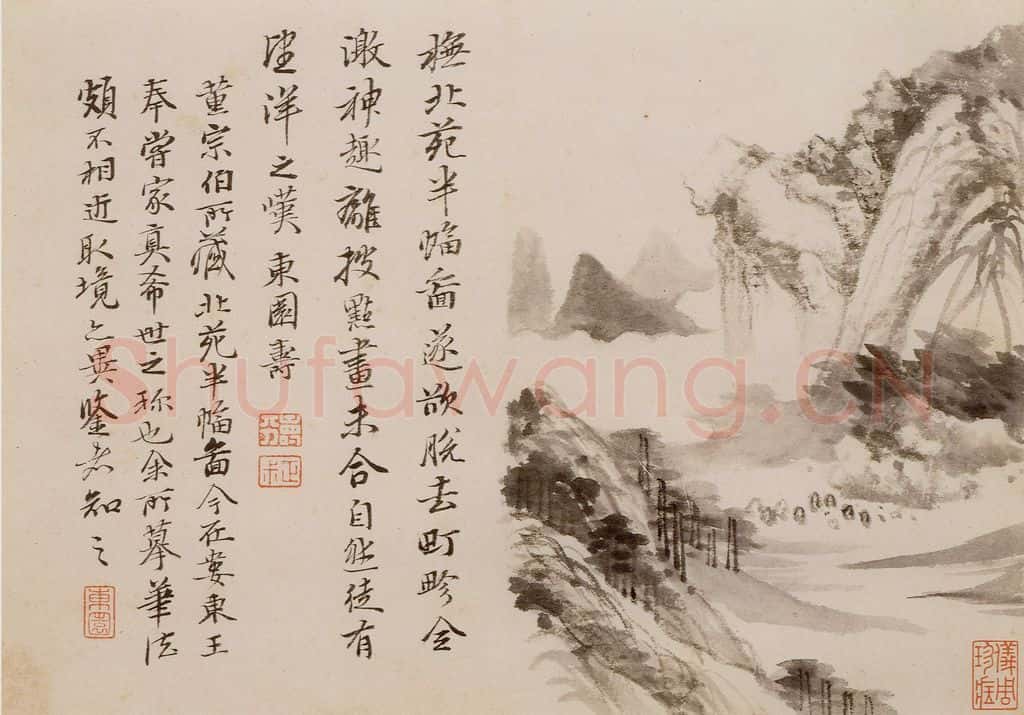 橅北苑半幅啚遂欲脫去町畛全
澂神趣離披點畫未合自然徒有
望洋之嘆 東園壽
董宗伯所藏北苑半幅啚今在婁東王
奉嘗家真希世之称也余所摹筆法
頗不相近取境亦異鑒者知之
東園
儀周珍藏
Shufawang.CN